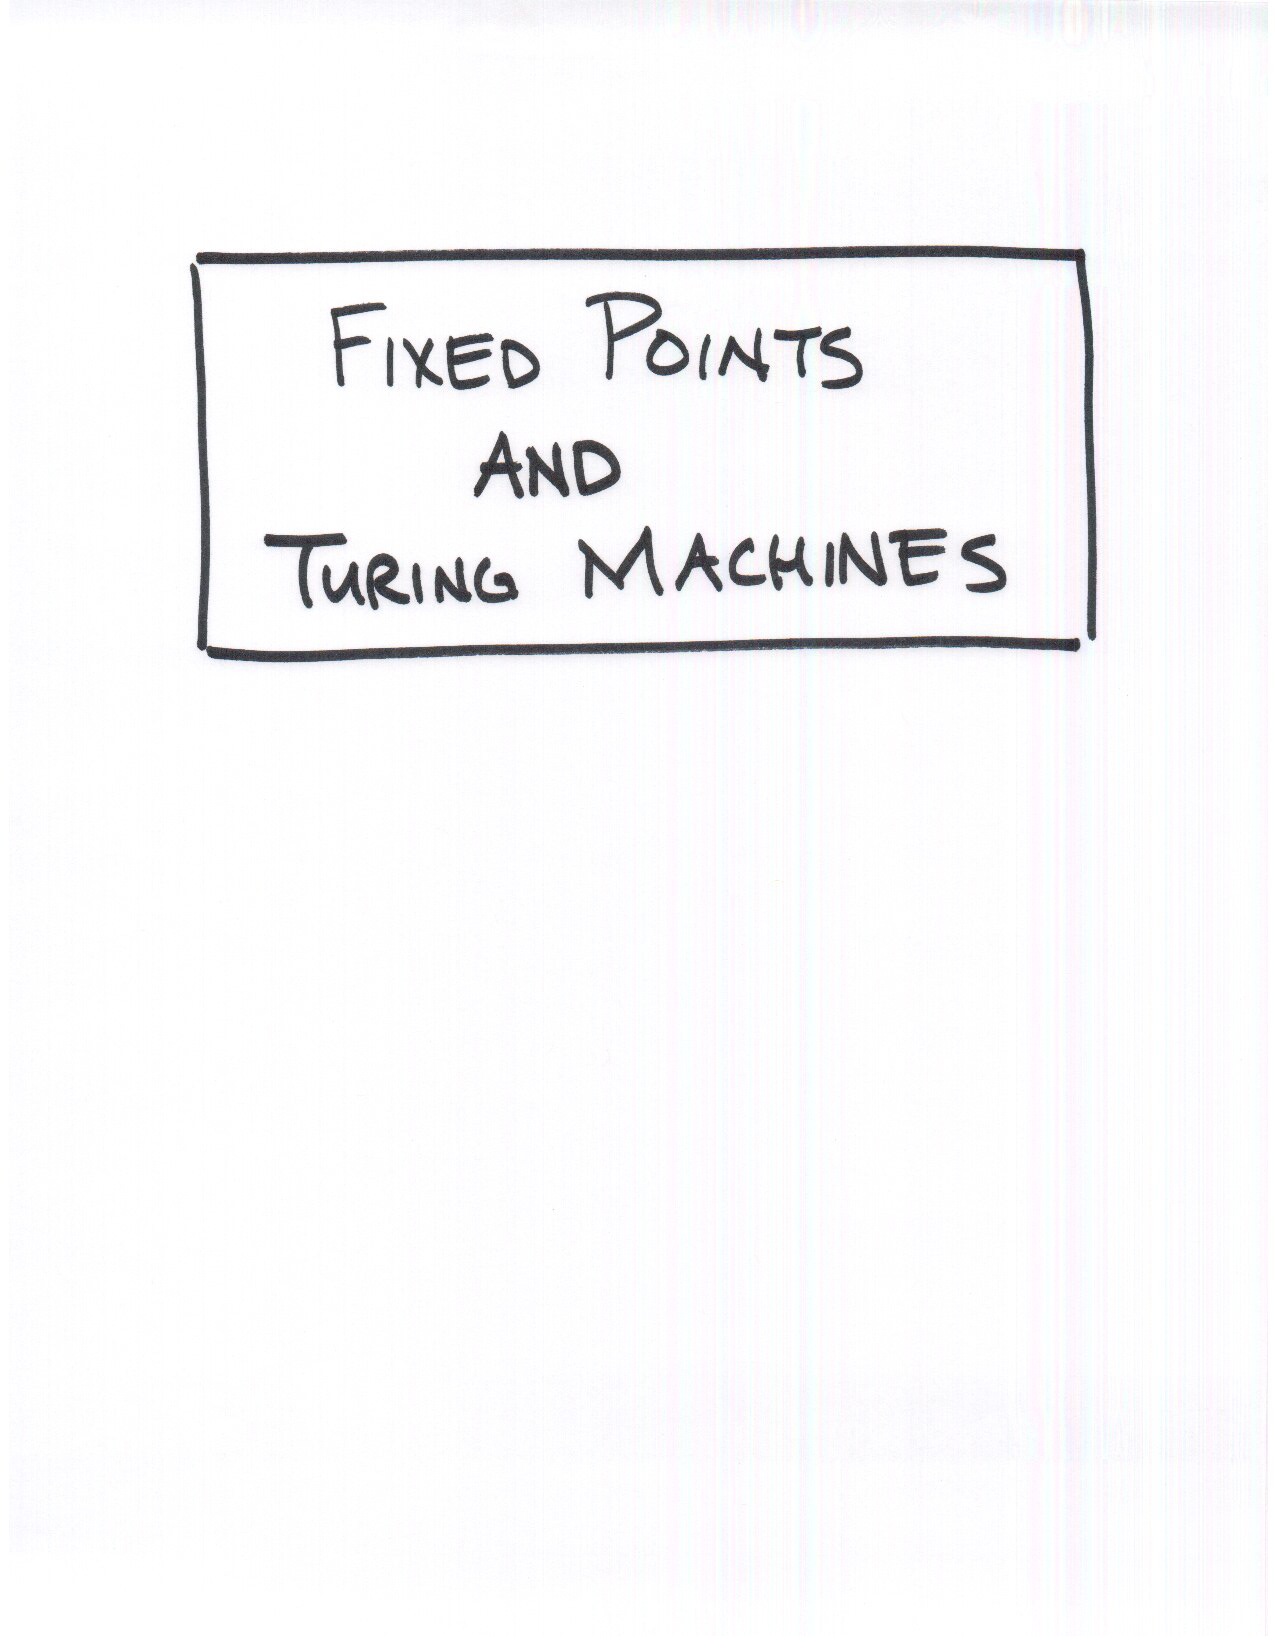 FIXED POINTS
AND
TURING MACHINES